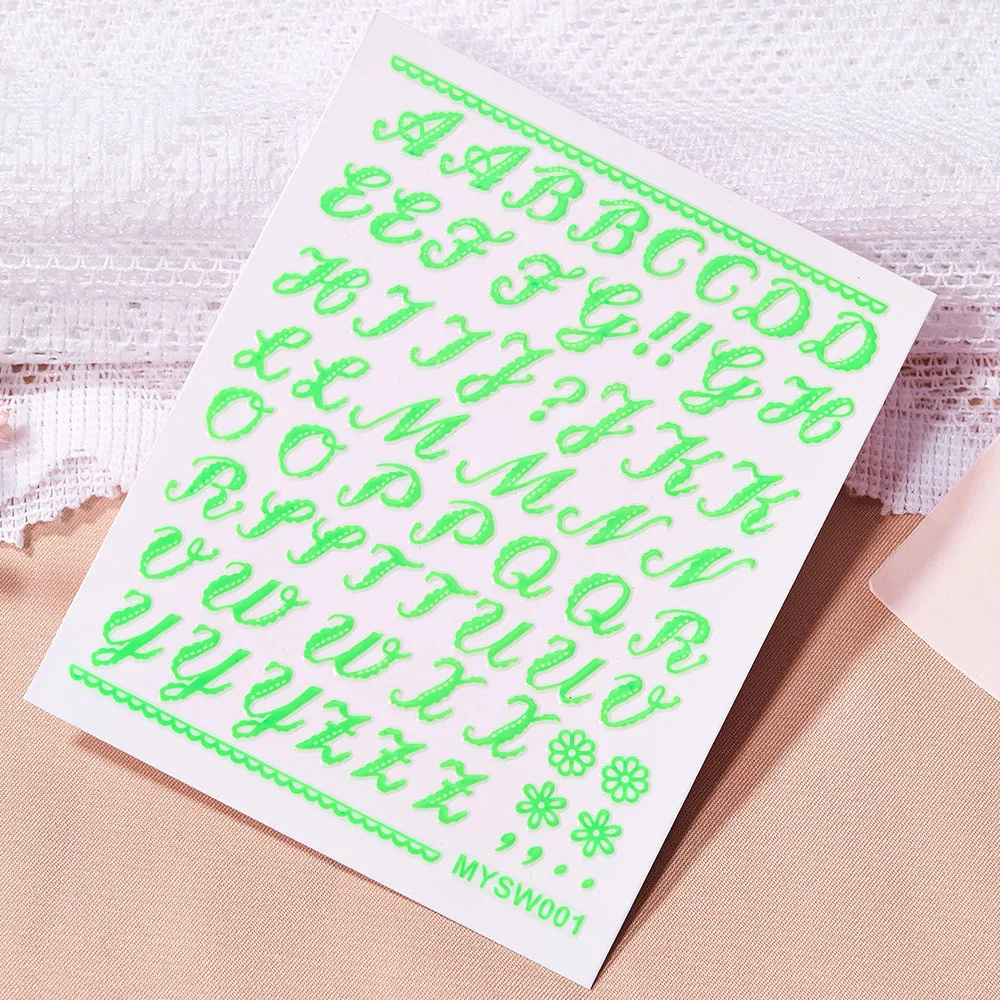 A A B B C C D D
E E F F G ! ! G H
H I I J ? J K K
L L M M N N
O O P P Q Q R
R S S T T U U V
V W W X X
Y Y Y Z Z Z
, , . .
MYSW001